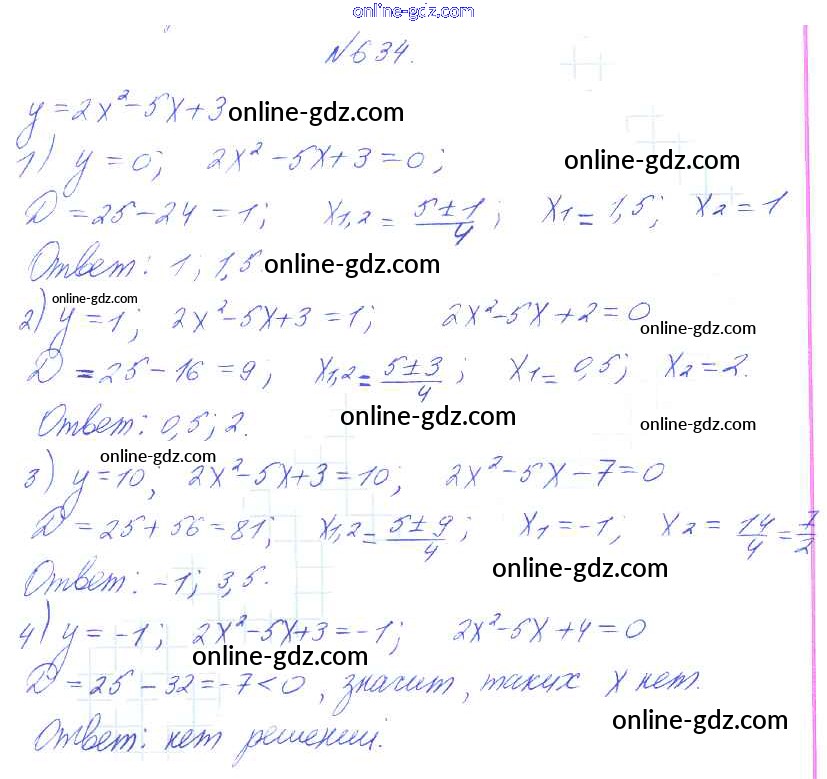 online-gdz.com
№634.
y=2x²-5x+3 online-gdz.com
1) y=0; 2x²-5x+3=0; online-gdz.com
D=25-24=1; x₁,₂=(5±1)/4; x₁=1,5; x₂=1
Ответ: 1; 1,5. online-gdz.com
online-gdz.com
2) y=1; 2x²-5x+3=1; 2x²-5x+2=0
online-gdz.com
D=25-16=9; x₁,₂=(5±3)/4; x₁=0,5; x₂=2.
Ответ: 0,5; 2. online-gdz.com online-gdz.com
online-gdz.com
3) y=10, 2x²-5x+3=10; 2x²-5x-7=0
D=25+56=81; x₁,₂=(5±9)/4; x₁=-1; x₂=14/4=7/2
Ответ: -1; 3,5. online-gdz.com
4) y=-1; 2x²-5x+3=-1; 2x²-5x+4=0
online-gdz.com
D=25-32=-7<0, значит, таких x нет.
Ответ: нет решений. online-gdz.com